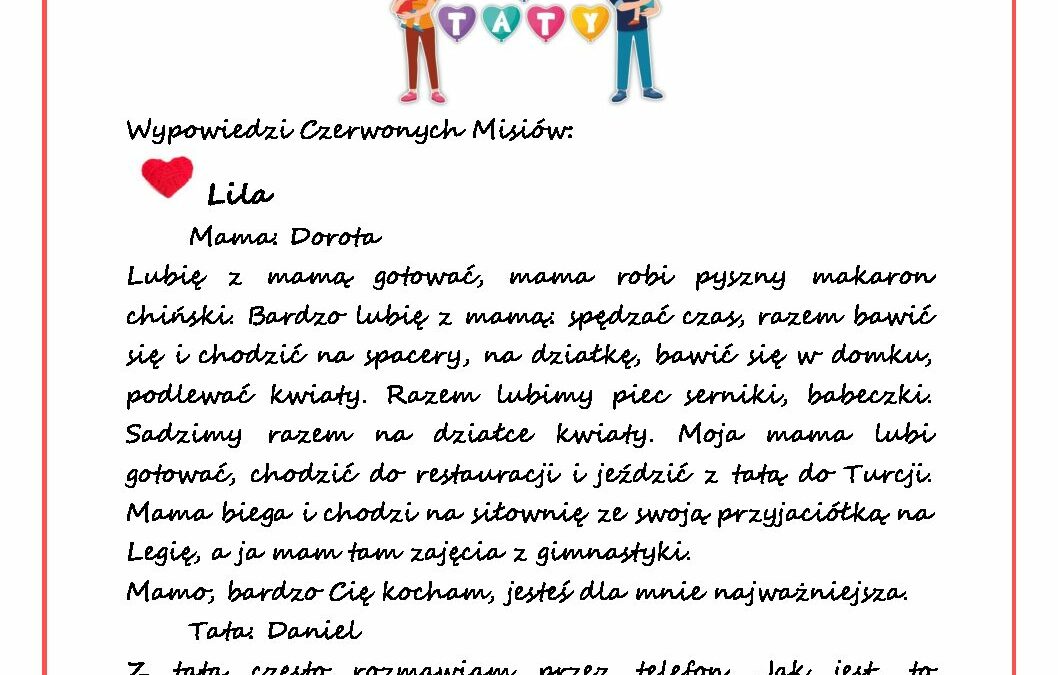 TATY
Wypowiedzi Czerwonych Misiów:
Lila
Mama: Dorota
Lubię z mamą gotować, mama robi pyszny makaron
chiński. Bardzo lubię z mamą: spędzać czas, razem bawić
się i chodzić na spacery, na działkę, bawić się w domku,
podlewać kwiaty. Razem lubimy piec serniki, babeczki.
Sadzimy razem na działce kwiaty. Moja mama lubi
gotować, chodzić do restauracji i jeździć z tatą do Turcji.
Mama biega i chodzi na siłownię ze swoją przyjaciółką na
Legię, a ja mam tam zajęcia z gimnastyki.
Mamo, bardzo Cię kocham, jesteś dla mnie najważniejsza.
Tata: Daniel
Z tatą często rozmawiam przez telefon. Jak jest to